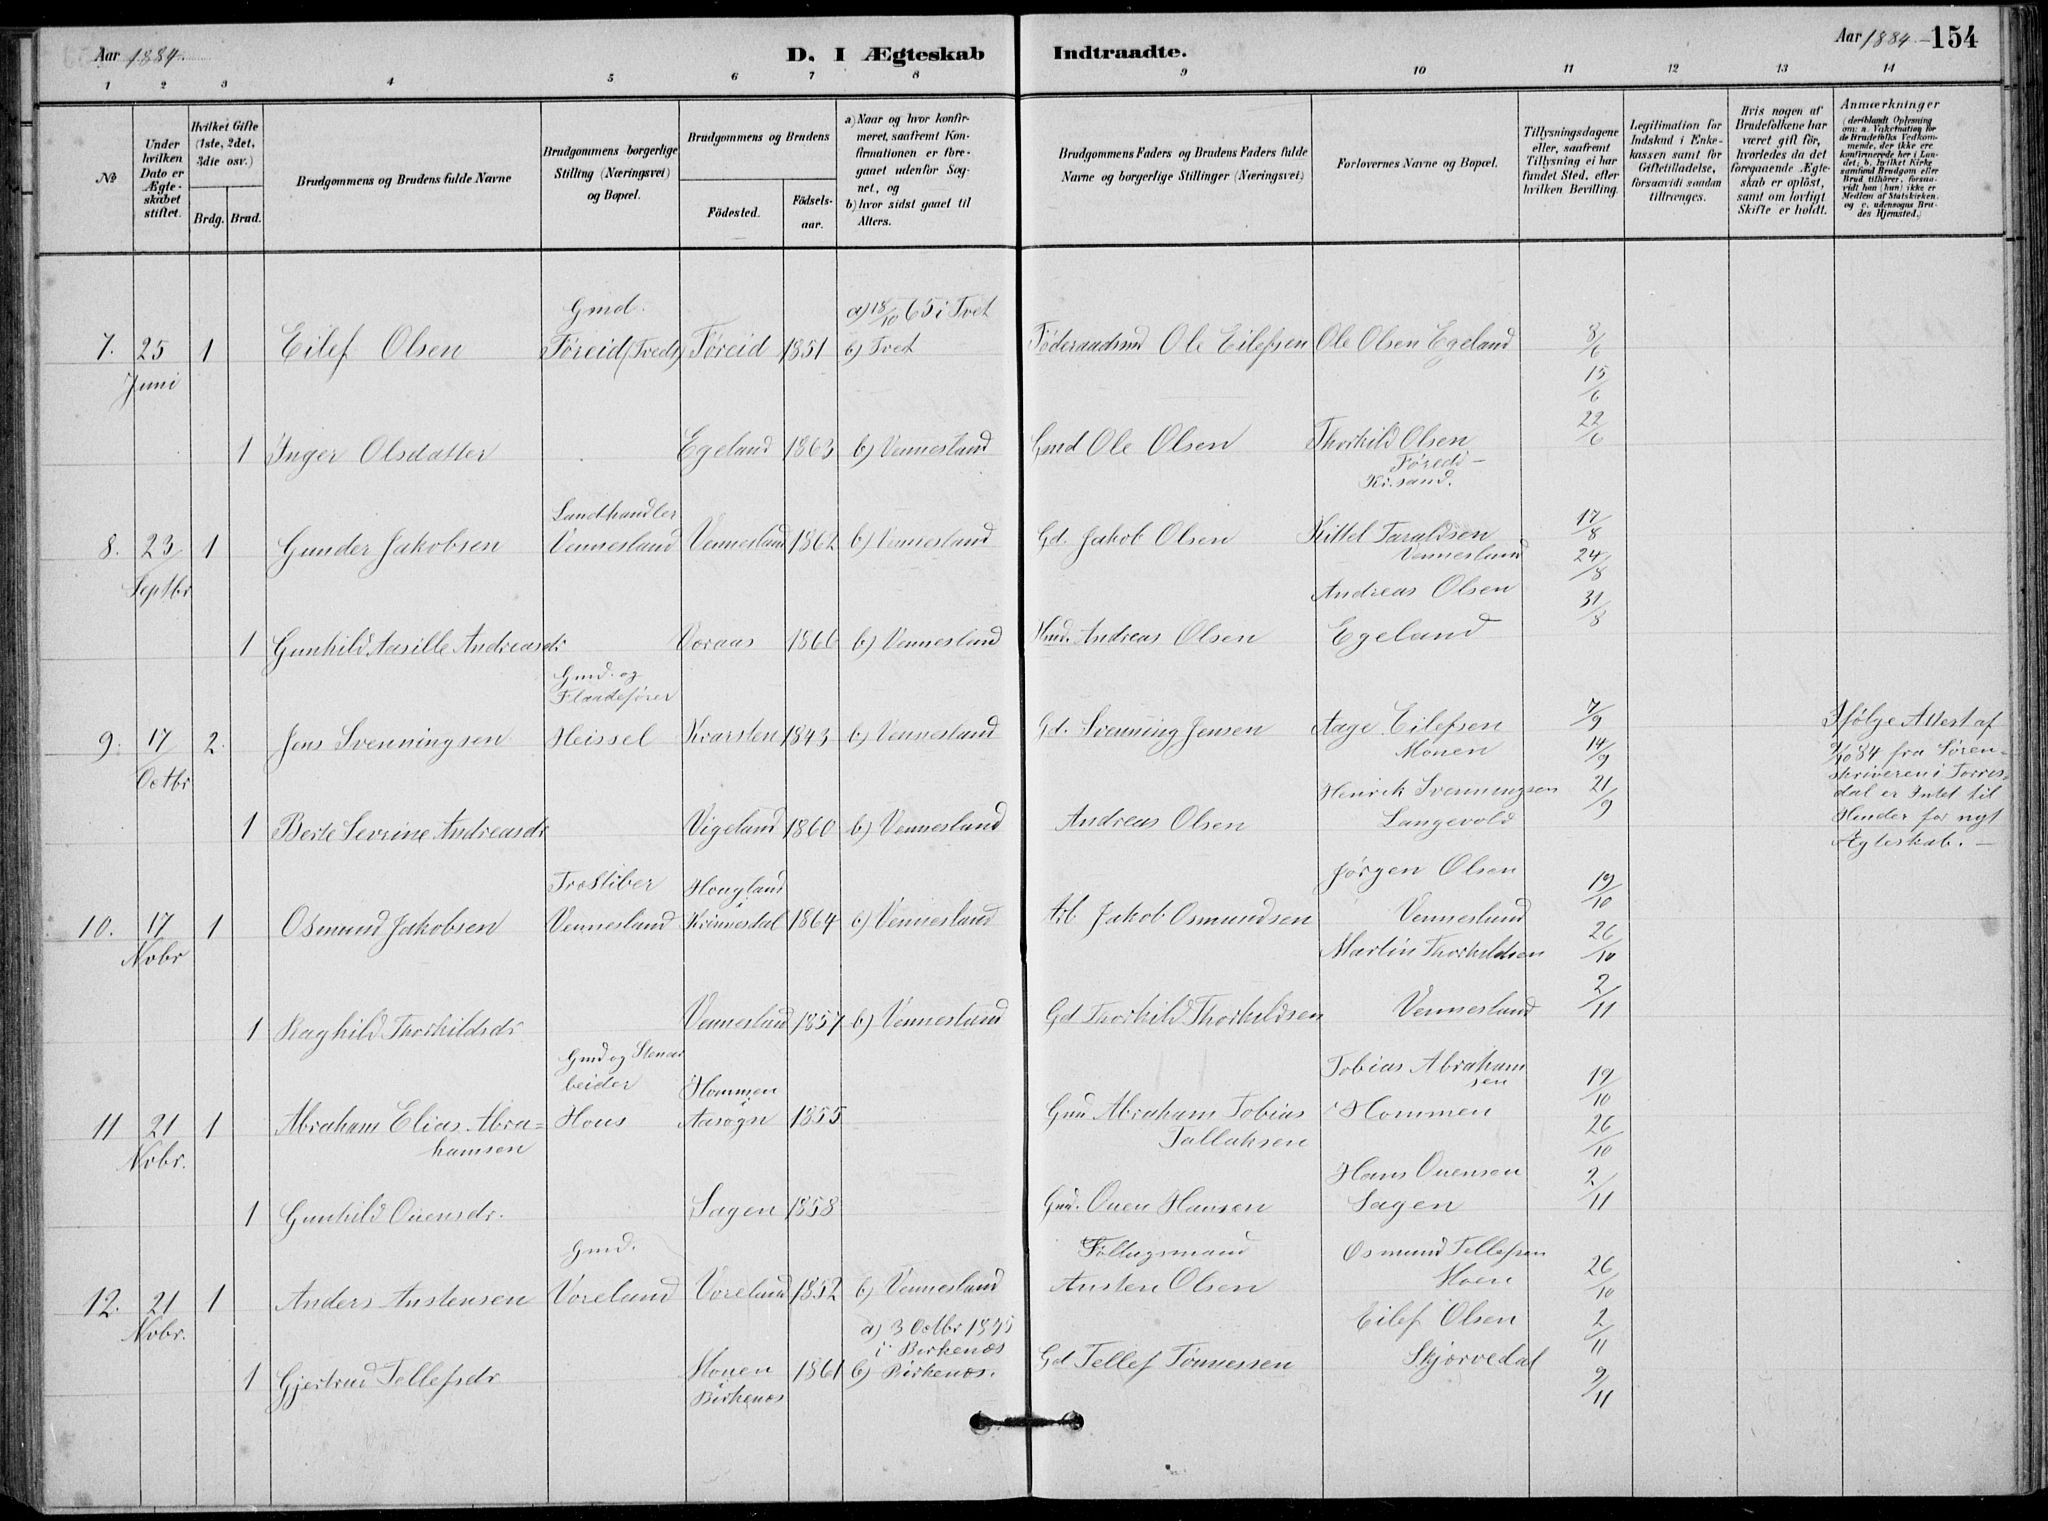 Aar 1884.
D. I Ægteskab
Indtraadte.
Aar 1884. 154
1 2 3 4 5 6 7 8 9 10 11 12 13 14
No
Under hvilken Dato er Ægteskabet stiftet.
Hvilket Gifte (1ste, 2det, 3die osv.)
Brdg. Brud.
Brudgommens og Brudens fulde Navne
Brudgommens borgerlige Stilling (Næringsvei) og Bopæl.
Brudgommens og Brudens
Födested. Födsels-aar.
a) Naar og hvor konfirmeret, saafremt Konfirmationen er foregaaet udenfor Sognet, og
b) hvor sidst gaaet til Alters.
Brudgommens Faders og Brudens Faders fulde Navne og borgerlige Stillinger (Næringsvei)
Forlovernes Navne og Bopæl.
Tillysningsdagene eller, saafremt Tillysning ei har fundet Sted, efter hvilken Bevilling.
Legitimation for Indskud i Enkekassen samt for Giftetilladelse, forsaavidt saadan tiltrænges.
Hvis nogen af Brudefolkene har været gift för, hvorledes da det foregaaende Ægteskab er oplöst, samt om lovligt Skifte er holdt.
Anmærkninger (deriblandt Oplysning om: a. Vakcination for de Brudefolks Vedkommende, der ikke ere konfirmerede her i Landet; b. hvilket Kirkesamfund Brudgom eller Brud tilhörer, forsaavidt han (hun) ikke er Medlem af Statskirken, og c. udensogns Brudes Hjemsted.)
Gmd. a) 18/10 65 i Tvet
7. 25 1 Eilef Olsen Föreid (Tvedt) Föreid 1851 b) Tvet Föderaadsmd Ole Eilefsen Ole Olsen Egeland 8/6
Juni 15/6
22/6
1 Inger Olsdatter Egeland 1863 b) Vennesland Gmd Ole Olsen Thorkild Olsen
Kr.sand.
Landhandler
8. 23 1 Gunder Jakobsen Vennesland Vennesland 1862 b) Vennesland Gd. Jakob Olsen Kittel Taraldsen 17/8
Septbr Vennesland 24/8
Andreas Olsen 31/8
1 Gunhild Aasille Andreasdr Voraas 1866 b) Vennesland Hmd. Andreas Olsen Egeland
Gmd. og
Flaadefører
9. 17 2. Jens Svenningsen Heissel Kvarsten 1843 b) Vennesland Gd. Svenning Jensen Aage Eilefsen 7/9 Ifølge Attest af
Octbr Monen 14/9 84 fra Søren-
skriveren i Torris-
Henrik Svenningsen 21/9 dal er Intet til
1 Berte Sevrine Andreasdr Vigeland 1860 b) Vennesland Andreas Olsen Langevold Hinder for nyt
Ægteskab. –
Træsliber Hougland Jørgen Olsen 19/10
10. 17 1 Osmund Jakobsen Vennesland 1864 b) Vennesland Arb Jakob Osmundsen Vennesland 26/10
Nvbr Martin Thorkildsen
1 Raghild Thorkildsdr Vennesland 1857 b) Vennesland Gd Thorkild Thorkildsen Vennesland 2/11
Gmd og Stenar
beider Hommen Tobias Abraham
sen 19/10
11 21 1 Abraham Elias Abra- Hous Aasogn 1855 Gmd Abraham Tobias Hommen 26/10
Nvbr. hamsen Tallaksen
Hans Ouensen 2/11
1 Gunhild Ouensdr. Sagen 1858 Gmd. Ouen Hansen Sagen
Gmd. Osmund Tellefsen
12. 21 1 Anders Austensen Voreland Voreland 1852 b) Vennesland Austen Olsen 26/10
Nvbr. a) 3 Octbr 1875 Eilef Olsen 2/11
i Birkenæs
1 Gjertrud Tellefsdr 1861 b) Birkenæs. Gd Tellef Tønnessen Skjørvedal
Birkenæs 9/11